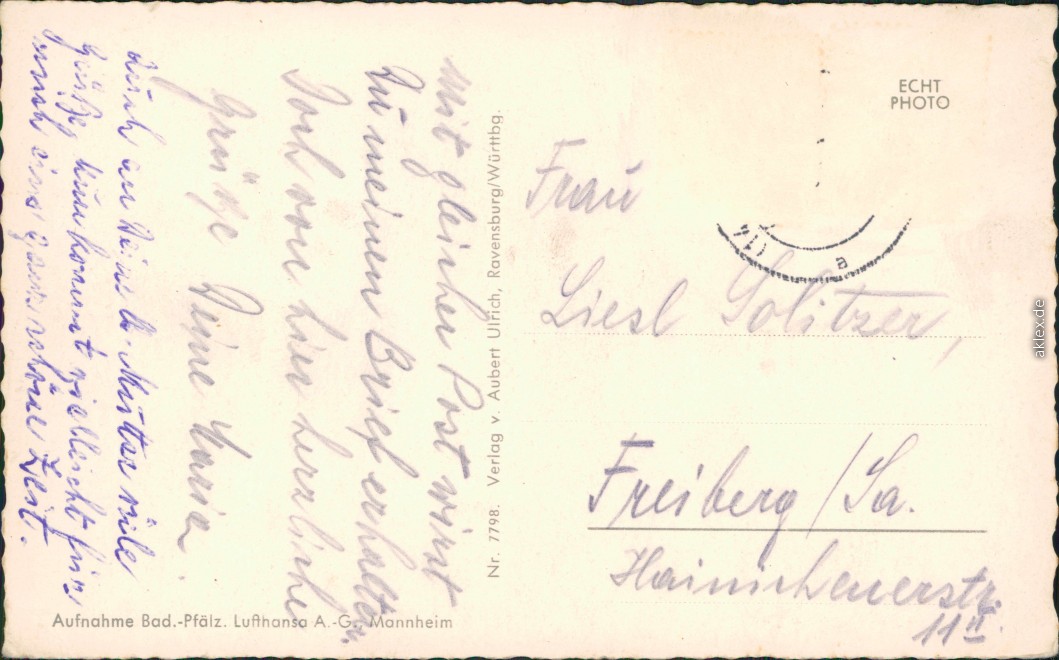 Mit gleicher Post wirst
Du meinen Brief erhalten.
Doch von hier herzliche
Grüße Deine Maria.
Auch an Deine lb. Mutter viele
Grüße, nun kommt vielleicht für
euch eine ganz schöne Zeit.
Nr. 7798. Verlag v. Aubert Ulrich, Ravensburg/Württbg.
Aufnahme Bad.-Pfälz. Lufthansa A.-G., Mannheim
ECHT
PHOTO
(14
a
Frau
Liesl Solitzer,
Freiberg/Sa.
Hainichenerstr.
11 II
aklex.de